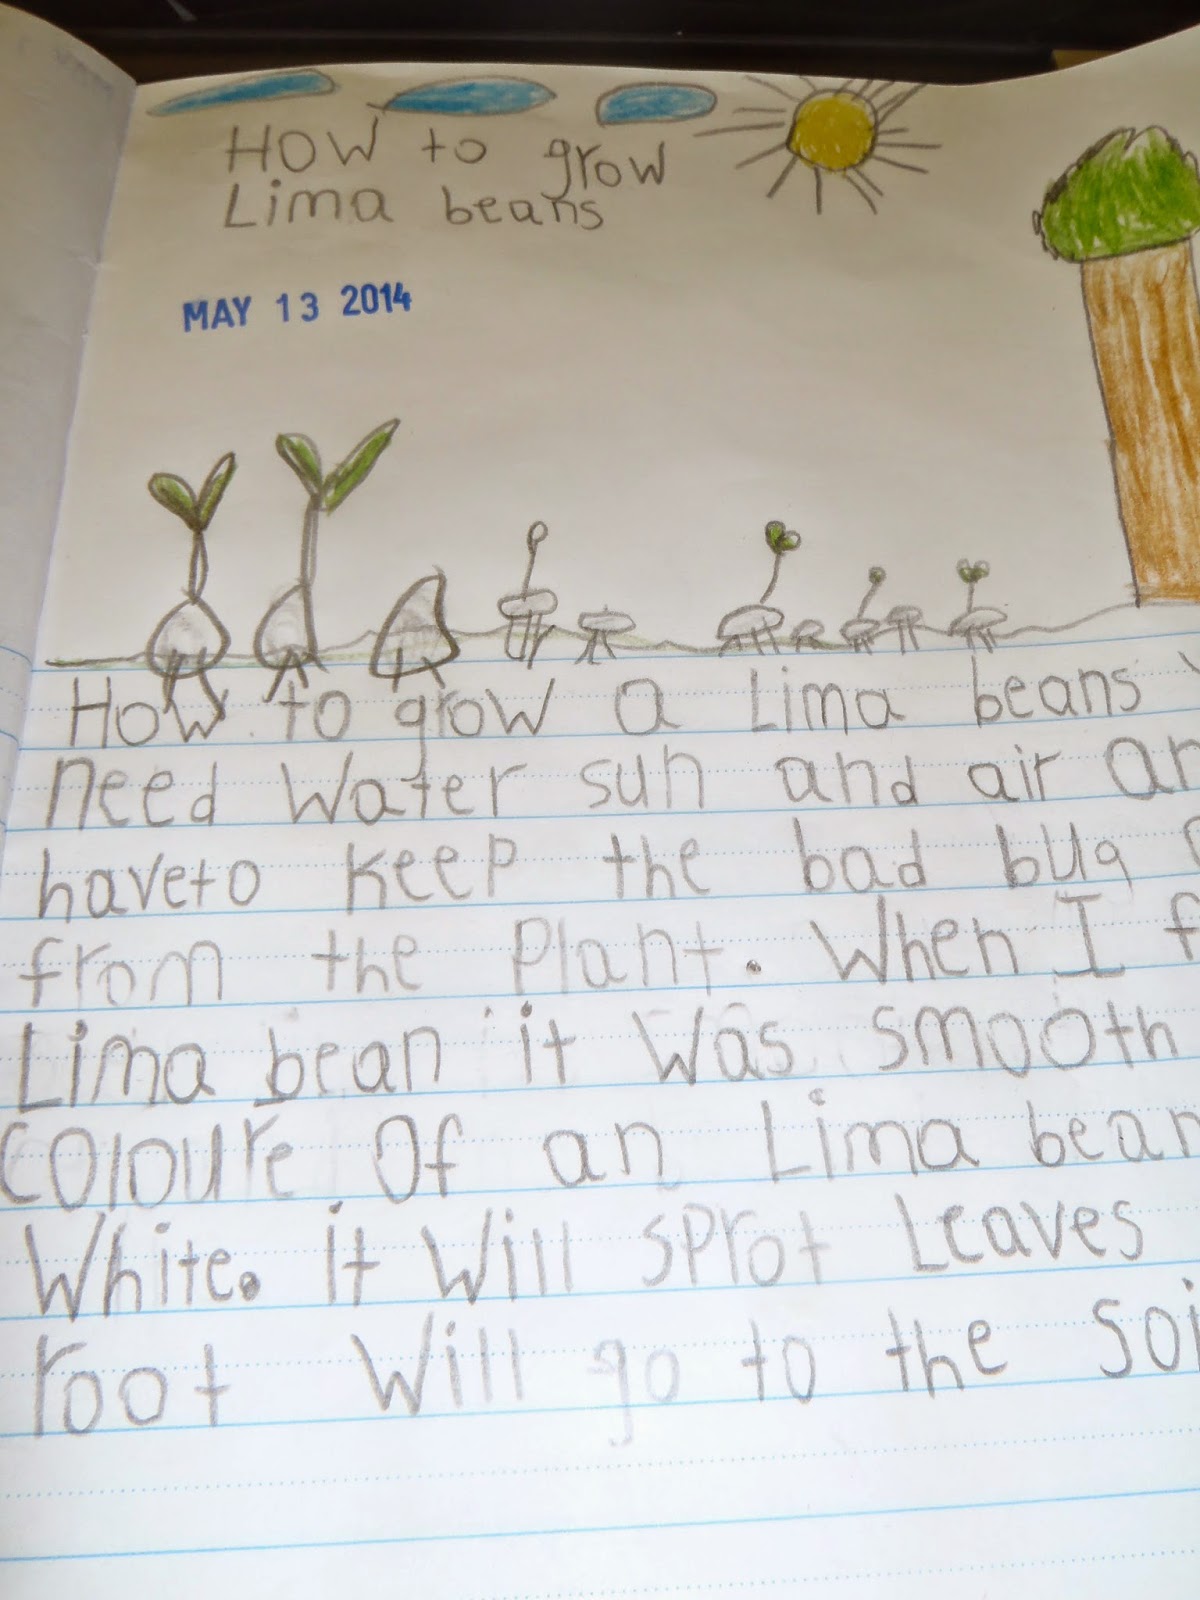 How to grow
Lima beans
MAY 13 2014
How to grow a Lima beans
need water sun and air an
haveto keep the bad bug
from the plant. When I f
Lima bean it was smooth
coloure of an Lima bean
white. it will sprot Leaves
root will go to the soi